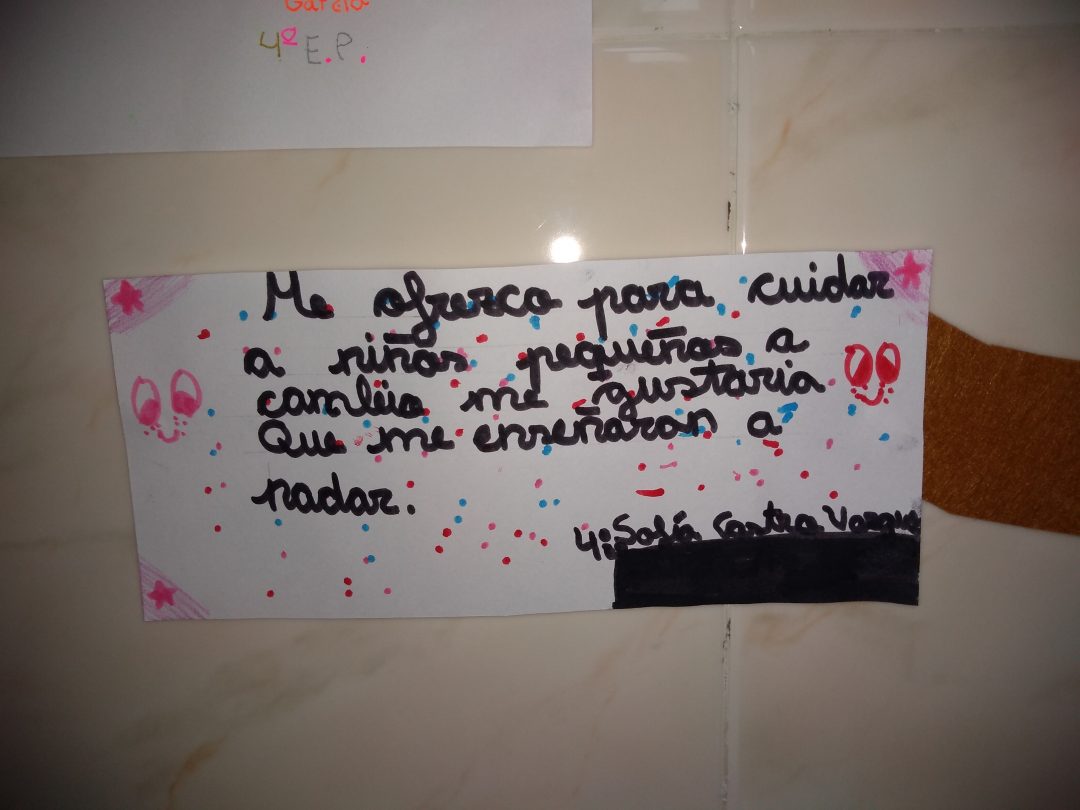 García
4º E.P.
Me ofrezco para cuidar
a niños pequeños a
cambio me gustaria
Que me enseñaran a
nadar.
4º Sofía Castro